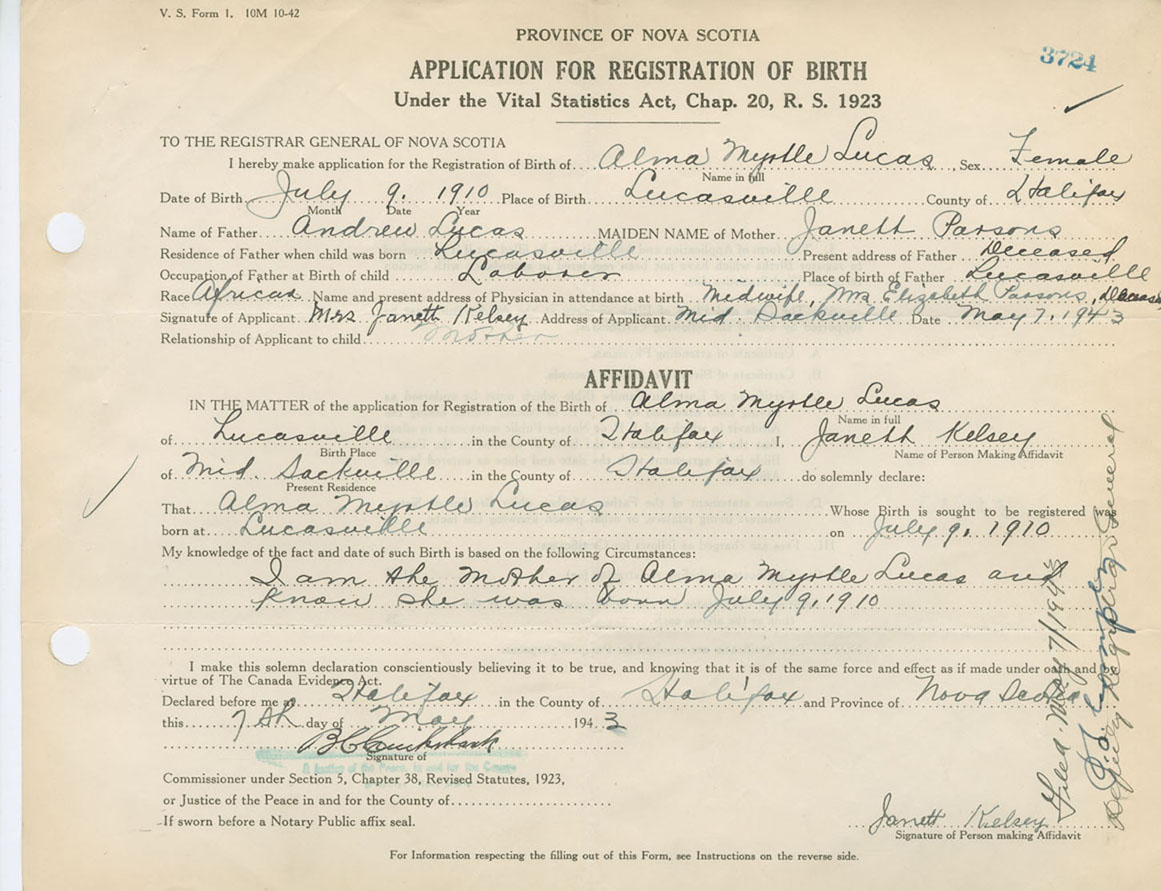 V. S. Form 1. 10M 10-42
PROVINCE OF NOVA SCOTIA
3724
APPLICATION FOR REGISTRATION OF BIRTH
Under the Vital Statistics Act, Chap. 20, R. S. 1923
TO THE REGISTRAR GENERAL OF NOVA SCOTIA
I hereby make application for the Registration of Birth of Alma Myrtle Lucas Sex Female
Name in full
Date of Birth July 9, 1910 Place of Birth Lucasville County of Halifax
Month Date Year
Name of Father Andrew Lucas MAIDEN NAME of Mother Janett Parsons
Residence of Father when child was born Lucasville Present address of Father Deceased
Occupation of Father at Birth of child Laborer Place of birth of Father Lucasville
Race African Name and present address of Physician in attendance at birth Midwife, Mrs Elizabeth Parsons, Deceased
Signature of Applicant Mrs Janett Kelsey Address of Applicant Mid. Sackville Date May 7, 1943
Relationship of Applicant to child Mother
AFFIDAVIT
IN THE MATTER of the application for Registration of the Birth of Alma Myrtle Lucas
Name in full
of Lucasville in the County of Halifax I, Janett Kelsey
Birth Place Name of Person Making Affidavit
of Mid. Sackville in the County of Halifax do solemnly declare:
Present Residence
That Alma Myrtle Lucas Whose Birth is sought to be registered was
born at Lucasville on July 9, 1910
My knowledge of the fact and date of such Birth is based on the following Circumstances:
I am the Mother of Alma Myrtle Lucas and
know she was born July 9, 1910
I make this solemn declaration conscientiously believing it to be true, and knowing that it is of the same force and effect as if made under oath and by
virtue of The Canada Evidence Act.
Declared before me at Halifax in the County of Halifax and Province of Nova Scotia
this 7th day of May 1943
Signature of
A Justice of the Peace, in and for the County
Commissioner under Section 5, Chapter 38, Revised Statutes, 1923,
or Justice of the Peace in and for the County of
If sworn before a Notary Public affix seal.
Janett Kelsey
Signature of Person making Affidavit
For Information respecting the filling out of this Form, see Instructions on the reverse side.
Filed. May 7/1943
Deputy Registrar General